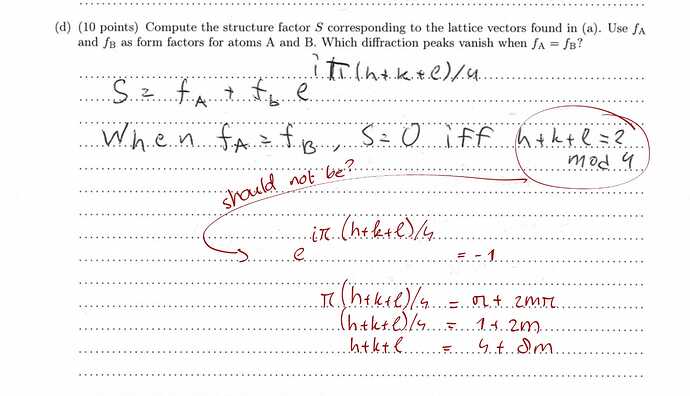 (d) (10 points) Compute the structure factor S corresponding to the lattice vectors found in (a). Use fA
and fB as form factors for atoms A and B. Which diffraction peaks vanish when fA = fB?
S = fA + fb e^iπ(h+k+l)/4
When fA = fB, S=0 iff h+k+l=2
mod 4
should not be?
e^iπ(h+k+l)/4 = -1
π(h+k+l)/4 = π + 2mπ
(h+k+l)/4 = 1+2m
h+k+l = 4+8m